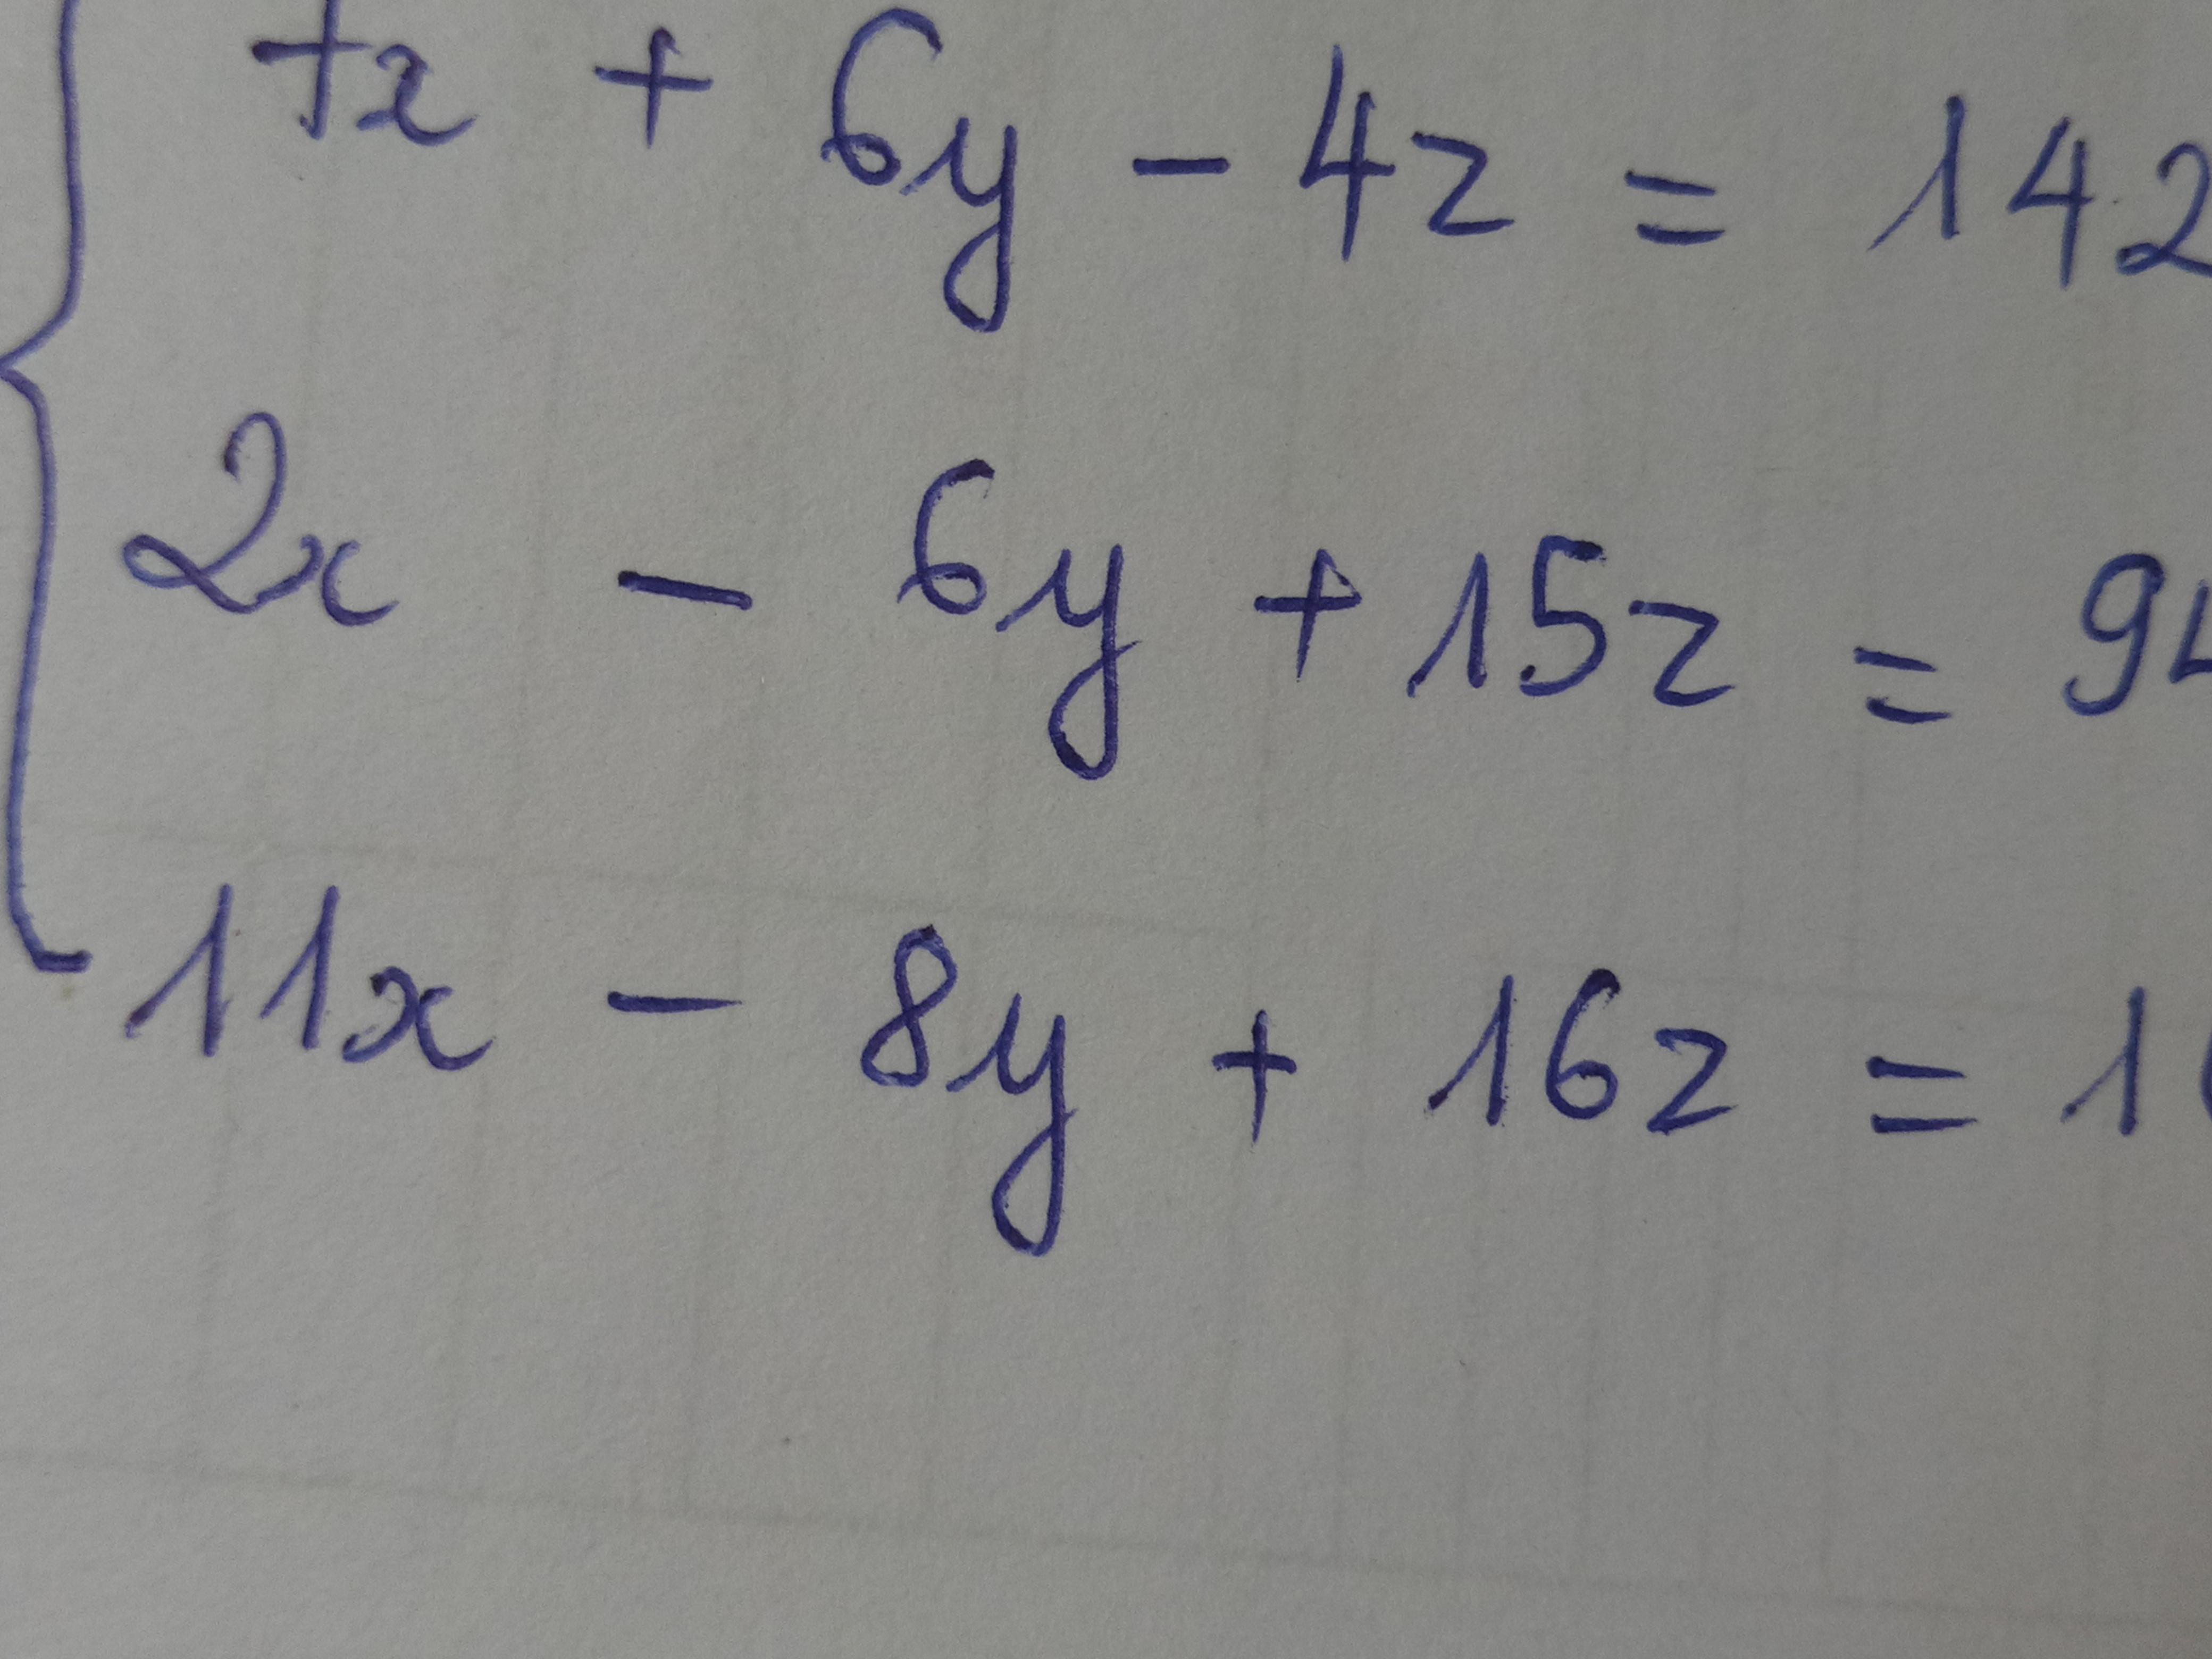 7x + 6y - 4z = 142
2x - 6y + 15z = 94
11x - 8y + 16z = 1